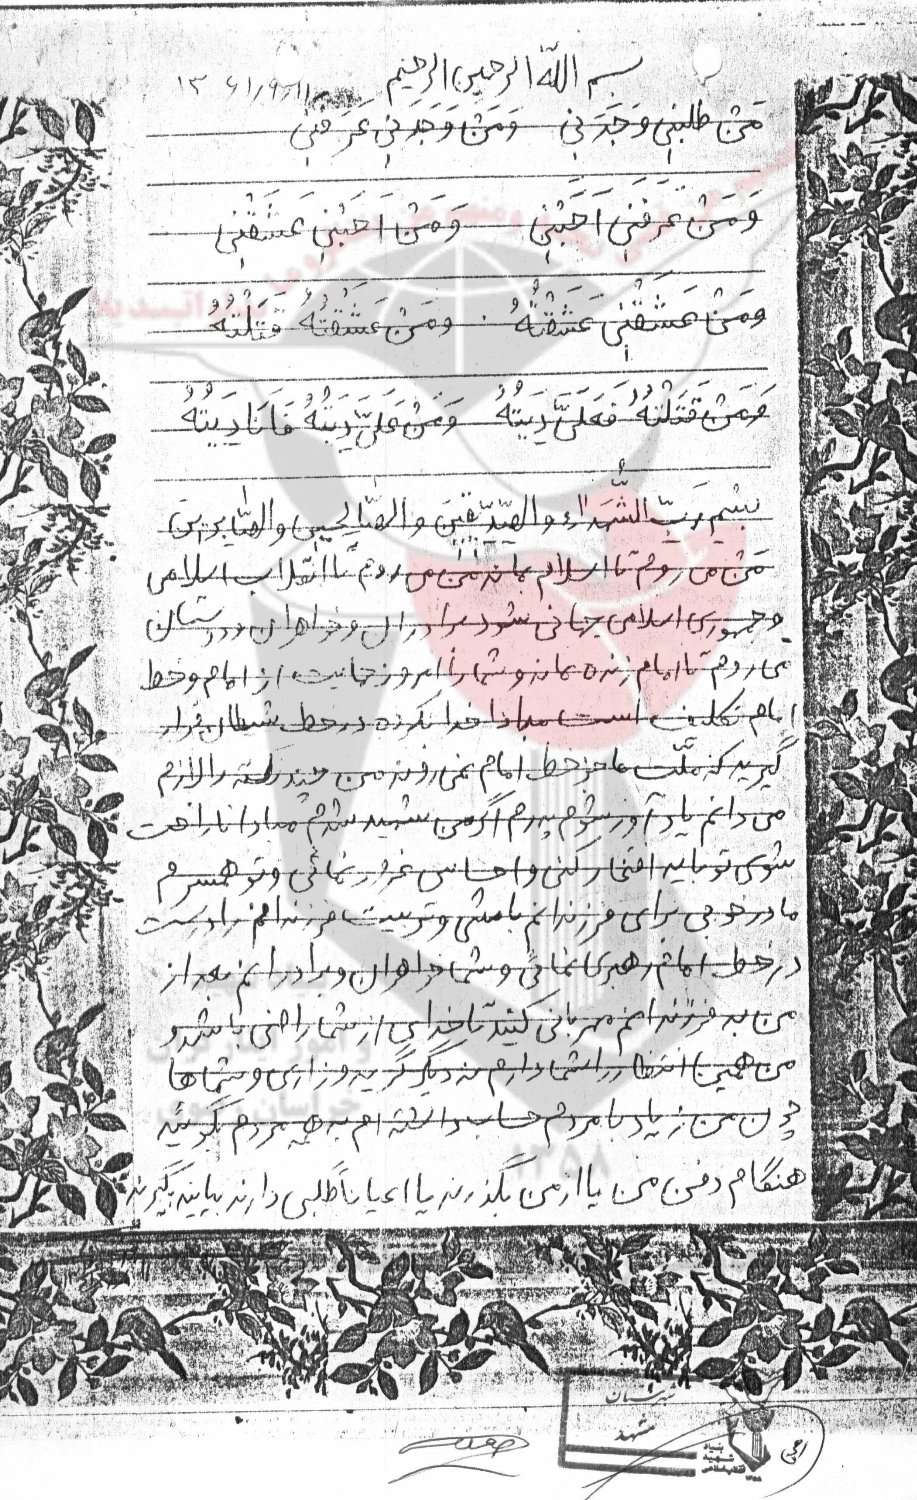 بسم الله الرحمن الرحیم ۱۳۶۱/۹/۱۱
مَن طلبنی وَجَدَنی وَمَن وَجَدَنی عَرَفَنی
وَمَن عَرَفَنی اَحَبَّنی وَمَن اَحَبَّنی عَشَقَنی
وَمَن عَشَقَنی عَشَقْتُهُ وَمَن عَشَقْتُهُ قَتَلْتُهُ
وَمَن قَتَلْتُهُ فَعَلَیَّ دِیَتُهُ وَمَن عَلَیَّ دِیَتُهُ فَاَنَا دِیَتُهُ
بسم رَبِّ الشُّهَداء و الصِّدیقینَ و الصّالِحینَ و الصّابرینَ
من می روم تا اسلام بماند من می روم تا انقلاب اسلامی
و جمهوری اسلامی جهانی شود برادران و خواهران و دوستان
می روم تا امام زنده بماند و شما را امروز حمایت از امام و خط
امام تکلیف است مبادا خدا نکرده در خط شیطان قرار
گیرید که ملّت ما جز خط امام نمی روند من چند نکته را لازم
می دانم یادآور شوم پدرم اگر من شهید شدم مبادا ناراحت
شوی تو باید افتخار کنی و احساس غرور نمائی و تو همسرم
مادر خوبی برای فرزندانم باشی و تربیت فرزندانم را درست
در خط امام رهبری نمائی و شما خواهران و برادرانم بعد از
من به فرزندانم مهربانی کنید تا خدای از شما راضی باشد و
من همین انتظار را از شما دارم نه دیگر گریه و زاری و شماها
چون من زیاد با مردم حساب داشته ام به همه مردم بگوئید
هنگام دفن من یا از من بگذرند یا احیاناً طلبی دارند بیایند بگیرند
۱۳۵۸
مشهد